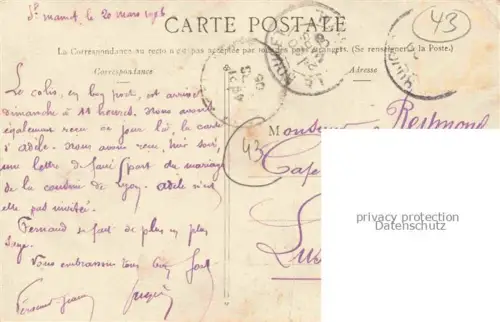 St mamet, le 20 mars 1906
CARTE POSTALE
La Correspondance au recto n'est pas acceptée par tous pays étrangers. (Se renseigner à la Poste.)
Correspondance
Adresse
43
Le colis, en bon port, est arrivé
dimanche à 11 heures. Nous avons
également reçu ce jour là, la carte
d'adèle. Nous avons reçu, hier soir,
une lettre de faire part du mariage
de la cousine de Lyon. adèle n'est
elle pas invitée.
Fernand se fait de plus en plus
sage.
Vous embrassons tous bien fort
Fernand
M Monsieur Reymond
43
privacy protection
Datenschutz